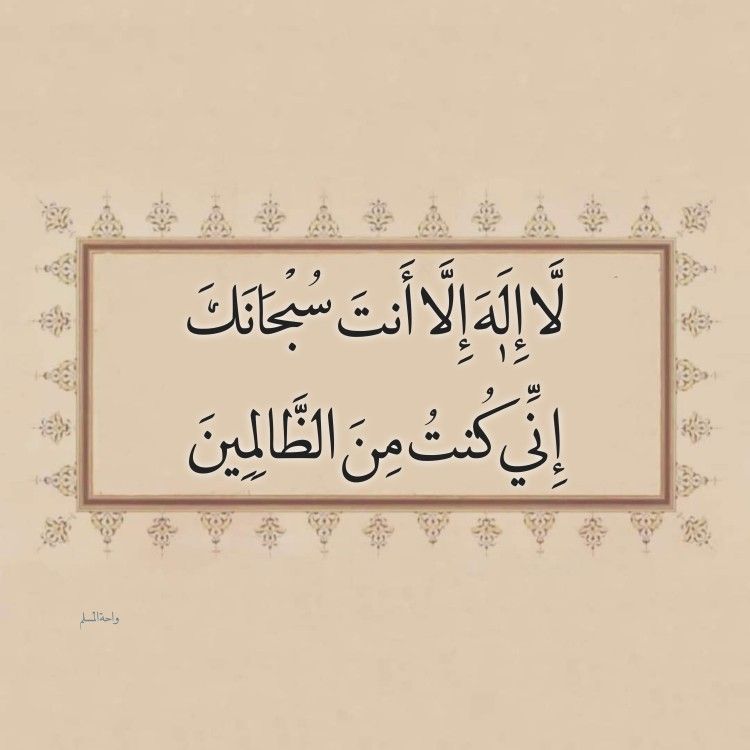 لَّا إِلَٰهَ إِلَّا أَنتَ سُبْحَانَكَ
إِنِّي كُنتُ مِنَ الظَّالِمِينَ
واحة المسلم